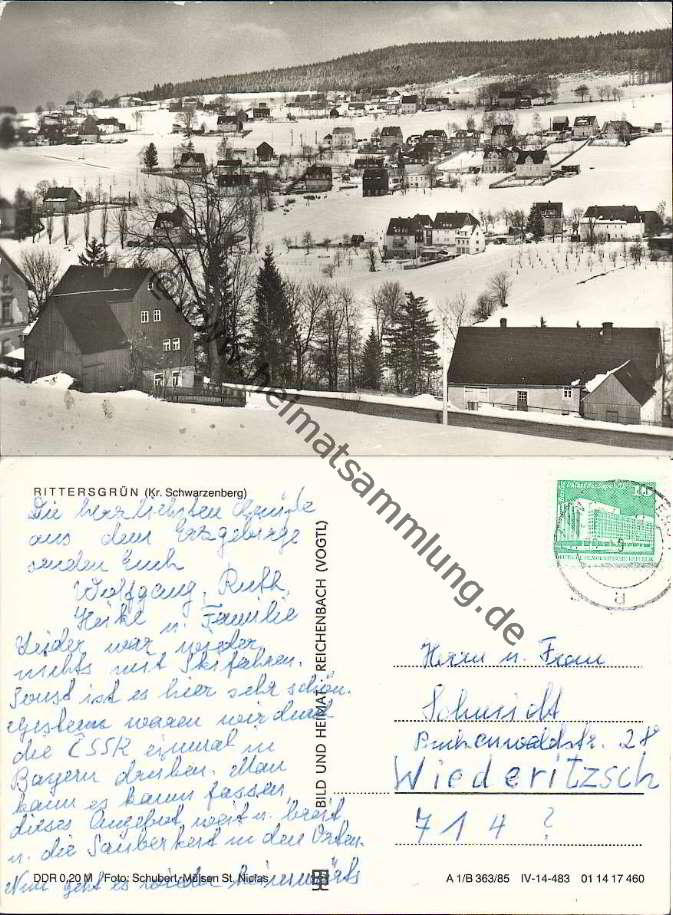 www.heimatsammlung.de
RITTERSGRÜN (Kr. Schwarzenberg)
Die herzlichsten Grüße
aus dem Erzgebirge
senden Euch
Wolfgang, Ruth
Heike u. Familie
Leider war wieder
nichts mit Skifahren.
Sonst ist es hier sehr schön.
Gestern waren wir durch
die ČSSR einmal in
Bayern drüben. Man
kann es kaum fassen,
dieses Angebot weit u. breit
u. die Sauberkeit in den Orten.
Nun geht es wieder heimwärts
BILD UND HEIMAT REICHENBACH (VOGTL)
10
Herrn u. Frau
Schmidt
Buchenwaldstr. 28
Wiederitzsch
714 ?
DDR 0,20 M Foto: Schubert, Mülsen St. Niclas
A 1/B 363/85 IV-14-483 01 14 17 460